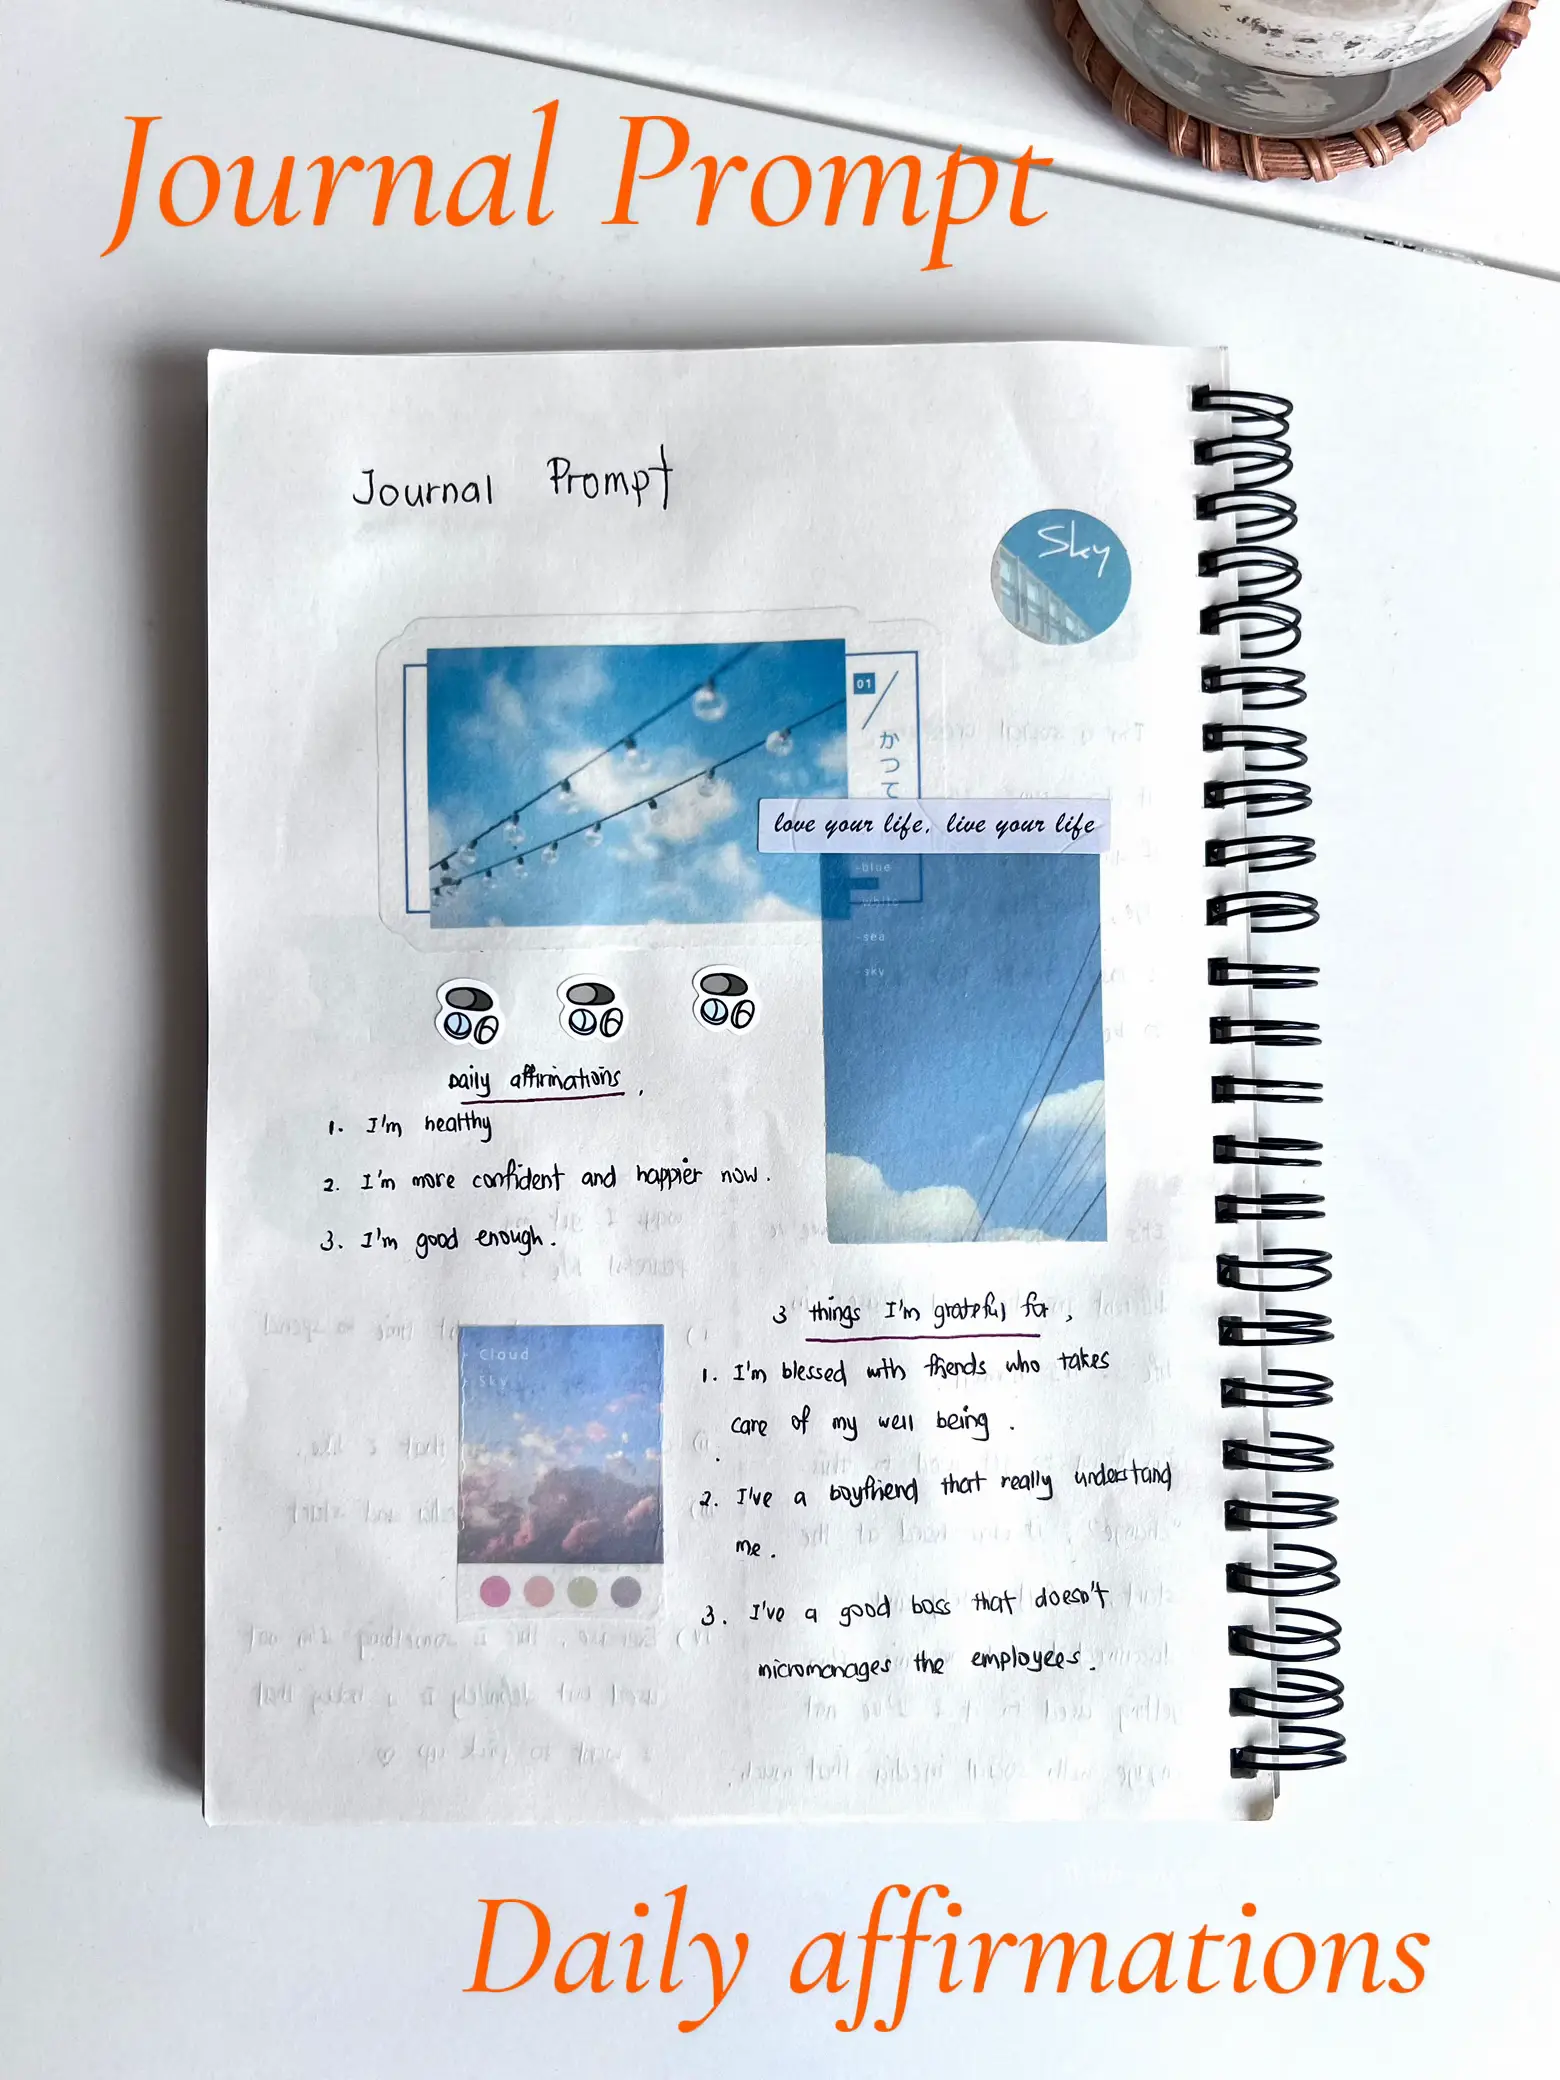 Journal Prompt
Journal Prompt
Sky
01
かつて
love your life, live your life
-blue
-white
-sea
-sky
Daily affirmations,
1. I'm healthy
2. I'm more confident and happier now.
3. I'm good enough.
Cloud
Sky
3 things I'm grateful for,
1. I'm blessed with friends who takes
care of my well being.
2. I've a boyfriend that really understand
me.
3. I've a good boss that doesn't
micromanages the employees.
Daily affirmations